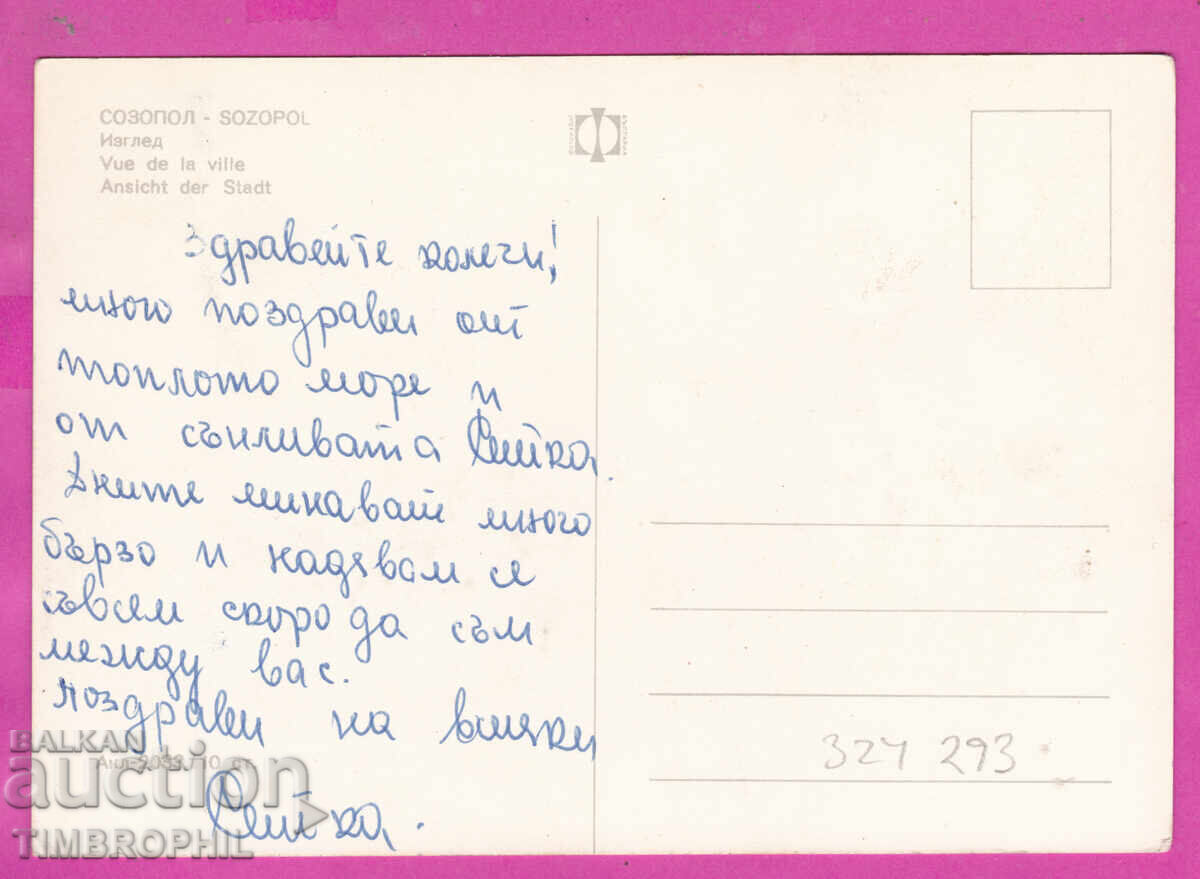 СОЗОПОЛ - SOZOPOL
Изглед
Vue de la ville
Ansicht der Stadt
Здравейте колеги!
много поздрави от
топлото море и
от сънливата
Дните минават много
бързо и надявам се
съвсем скоро да съм
между вас.
Поздрави на всички
324 293
BALKAN
auction
TIMBROPHIL